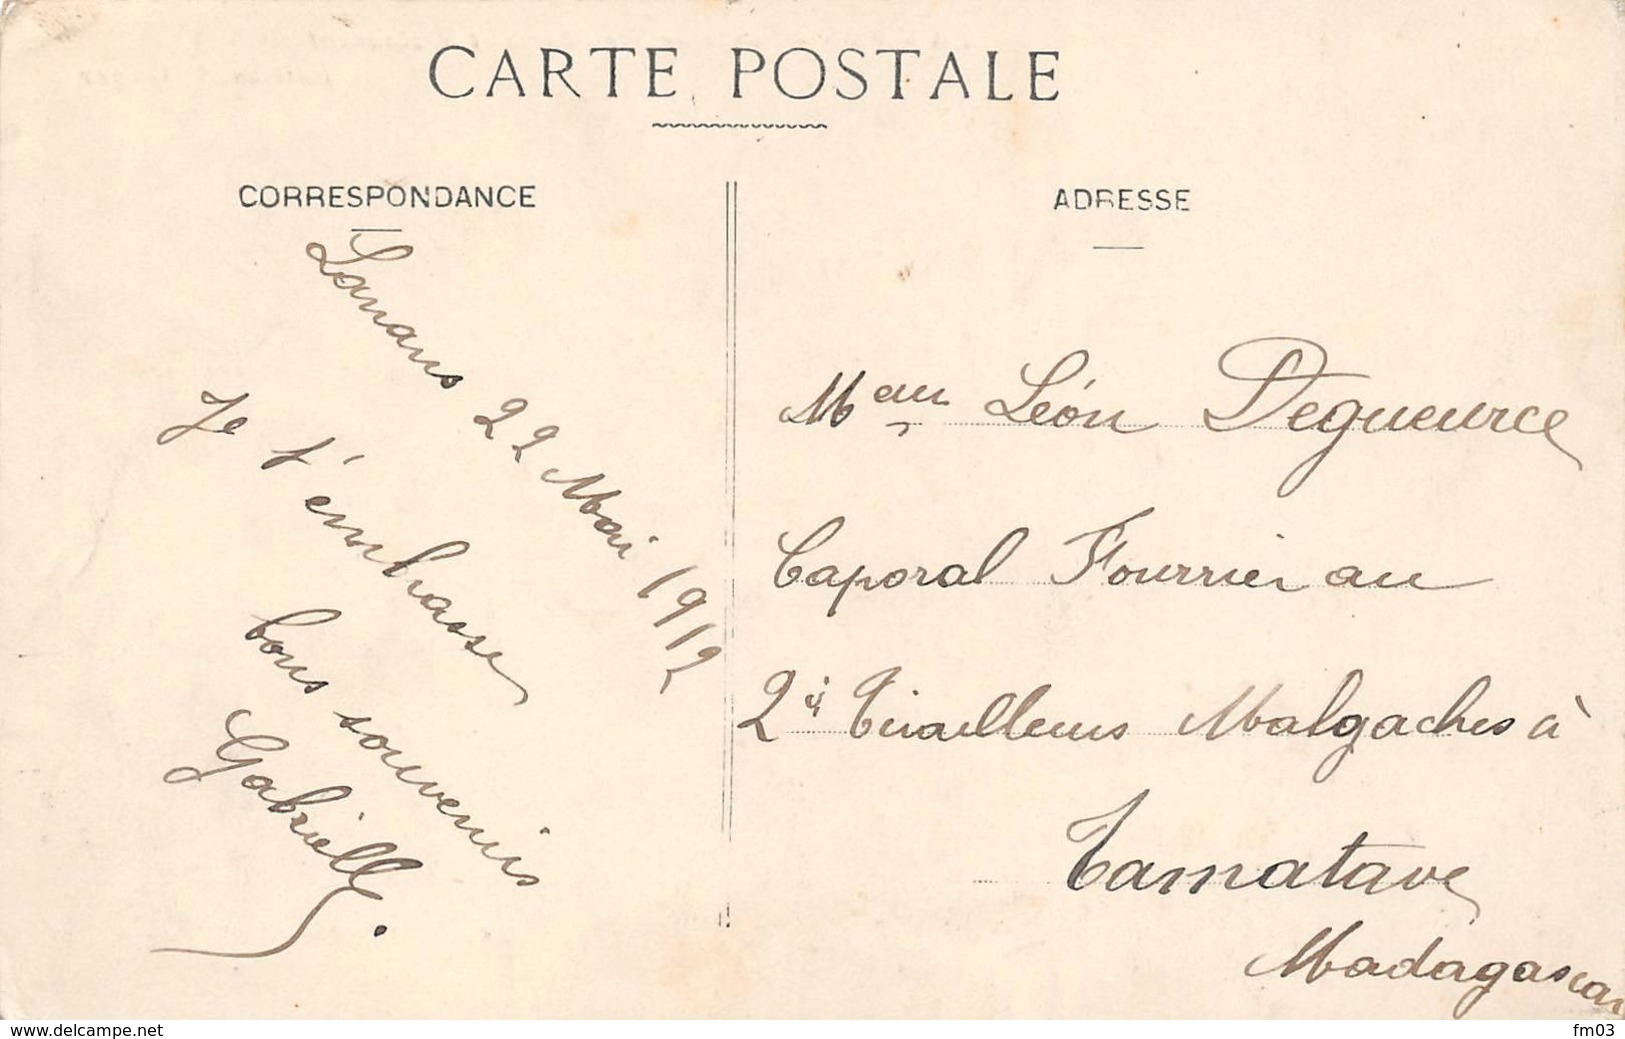 CARTE POSTALE
CORRESPONDANCE
ADRESSE
Lanans 22 Mai 1912
Je t'embrasse
bons souvenirs
Gabrielle.
Léon Degueurce
Caporal Fourrier au
2è Tirailleurs Malgaches à
Tamatave
Madagascar
www.delcampe.net
fm03